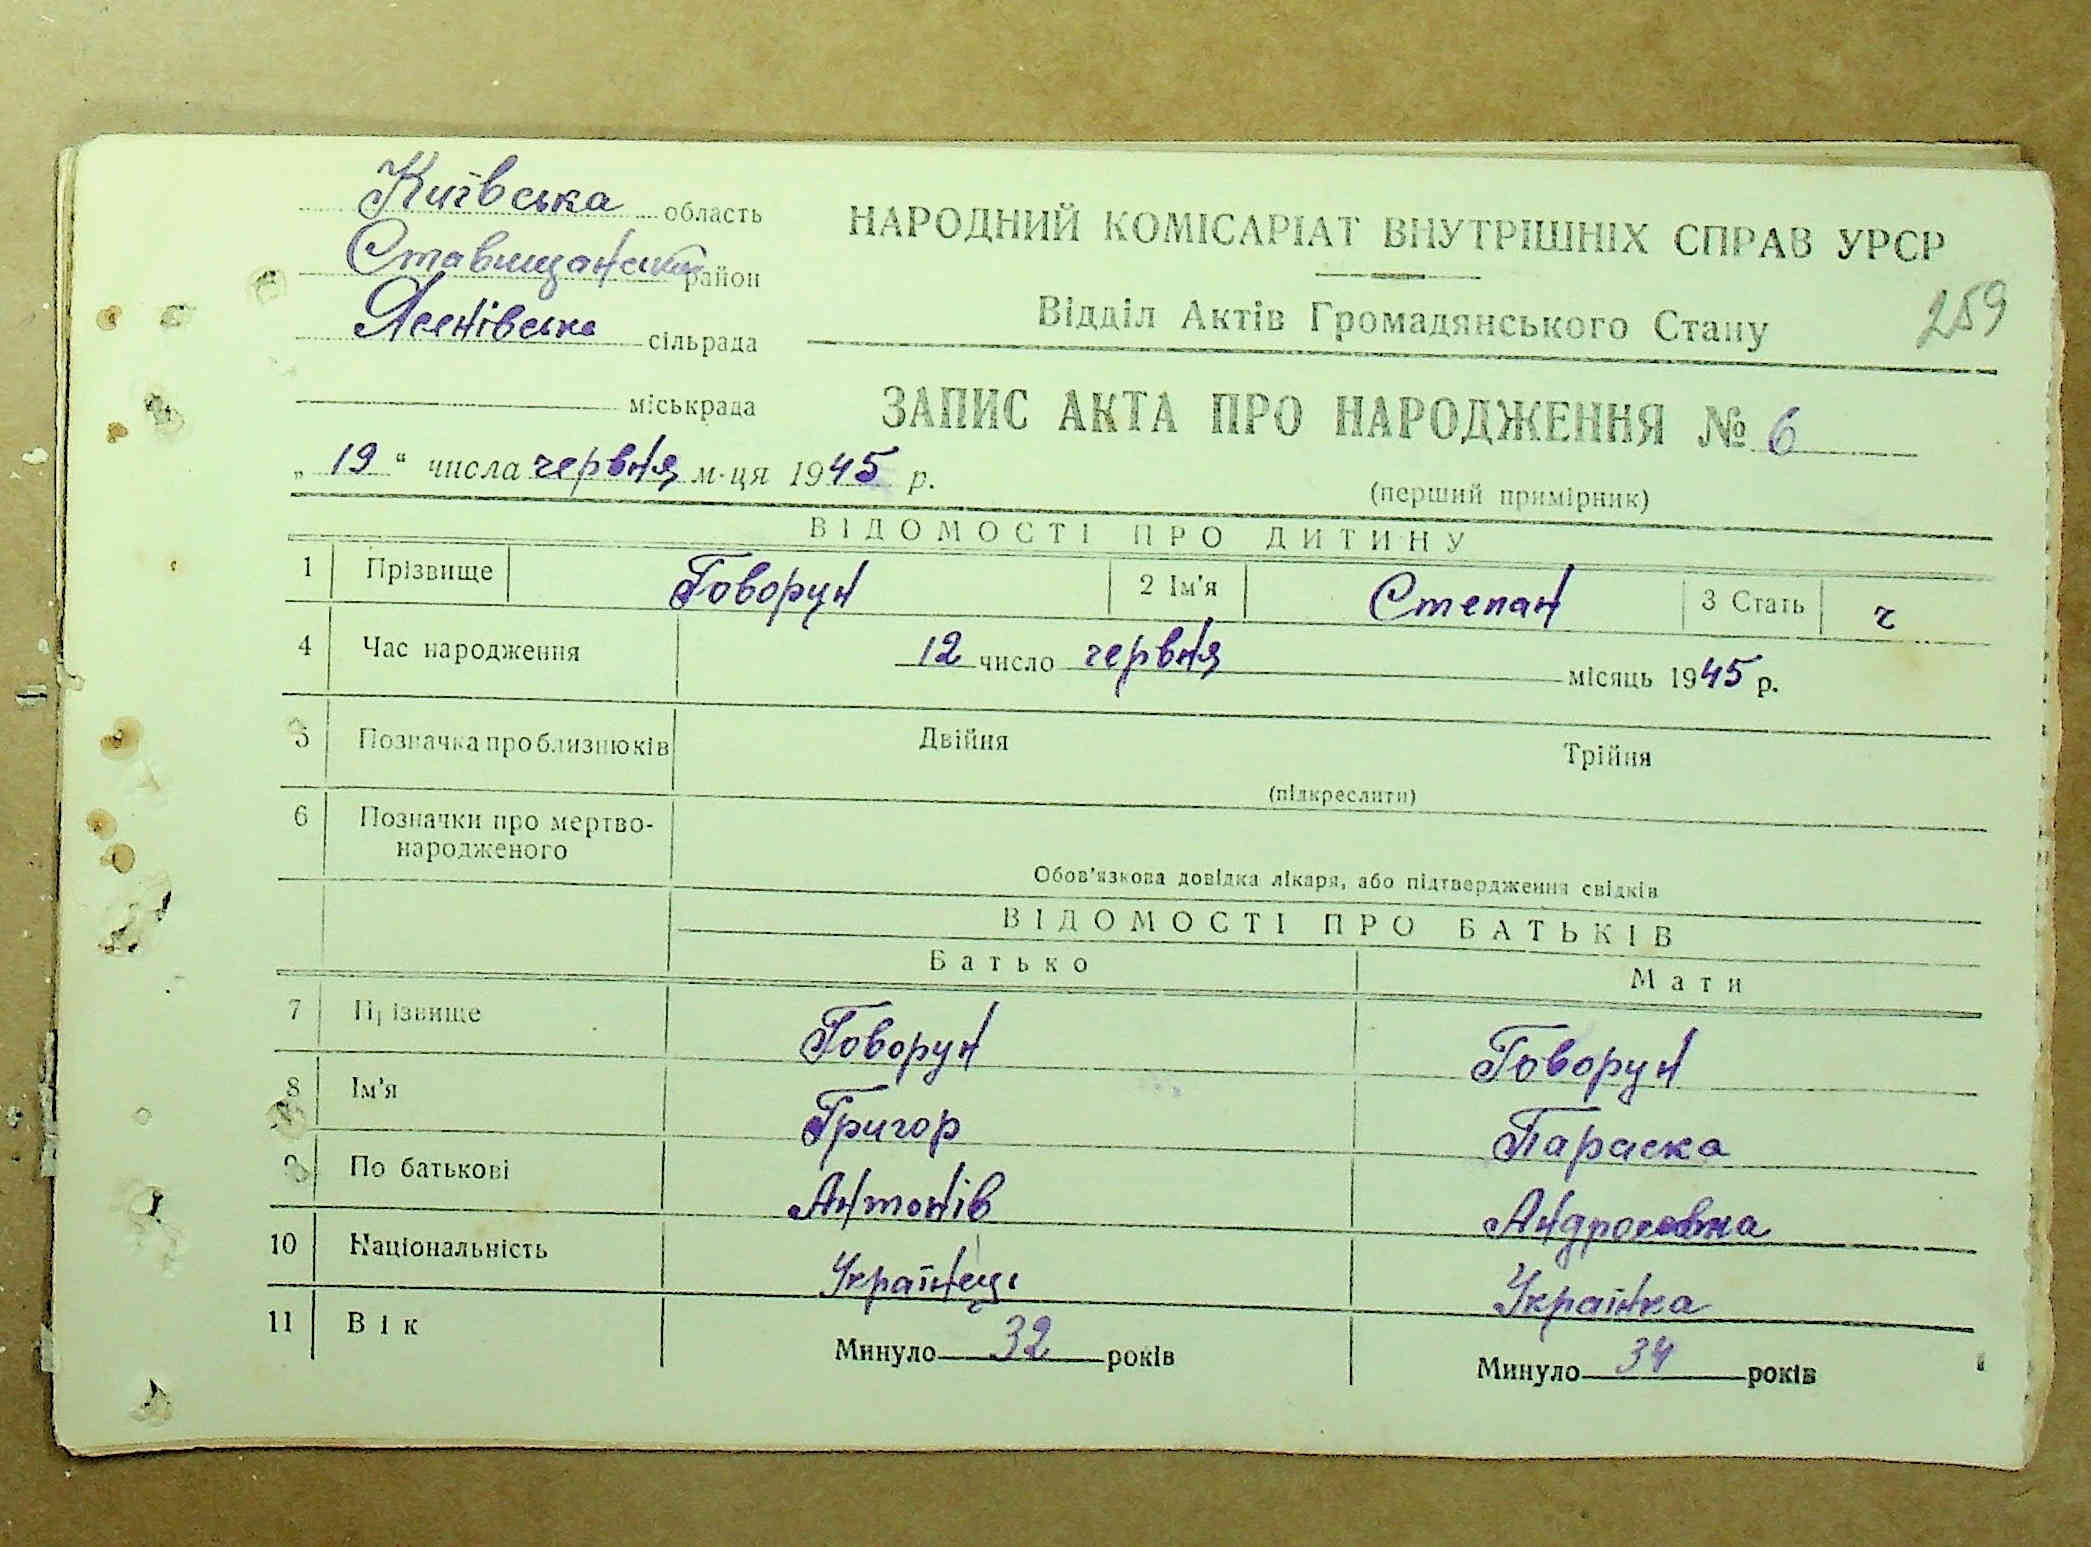 Київська область
Ставищанський район
Ясенівська сільрада
міськрада
НАРОДНИЙ КОМІСАРІАТ ВНУТРІШНІХ СПРАВ УРСР
Відділ Актів Громадянського Стану
259
ЗАПИС АКТА ПРО НАРОДЖЕННЯ № 6
„ 19 “ числа червня м-ця 1945 р.
(перший примірник)
ВІДОМОСТІ ПРО ДИТИНУ
1 Прізвище Говорун 2 Ім'я Степан 3 Стать ч
4 Час народження 12 число червня місяць 1945 р.
5 Позначка про близнюків Двійня Трійня
(підкреслити)
6 Позначки про мертво-
народженого
Обов'язкова довідка лікаря, або підтвердження свідків
ВІДОМОСТІ ПРО БАТЬКІВ
Батько Мати
7 Прізвище Говорун Говорун
8 Ім'я Григор Параска
9 По батькові Антонів
10 Національність Українець Українка
11 Вік Минуло 32 років Минуло 34 років